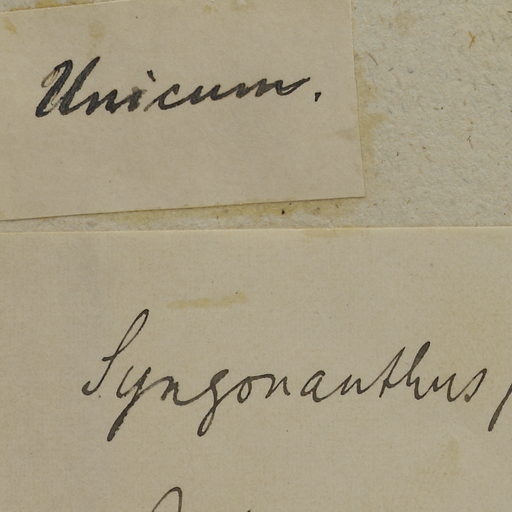 Unicum.
Syngonanthus